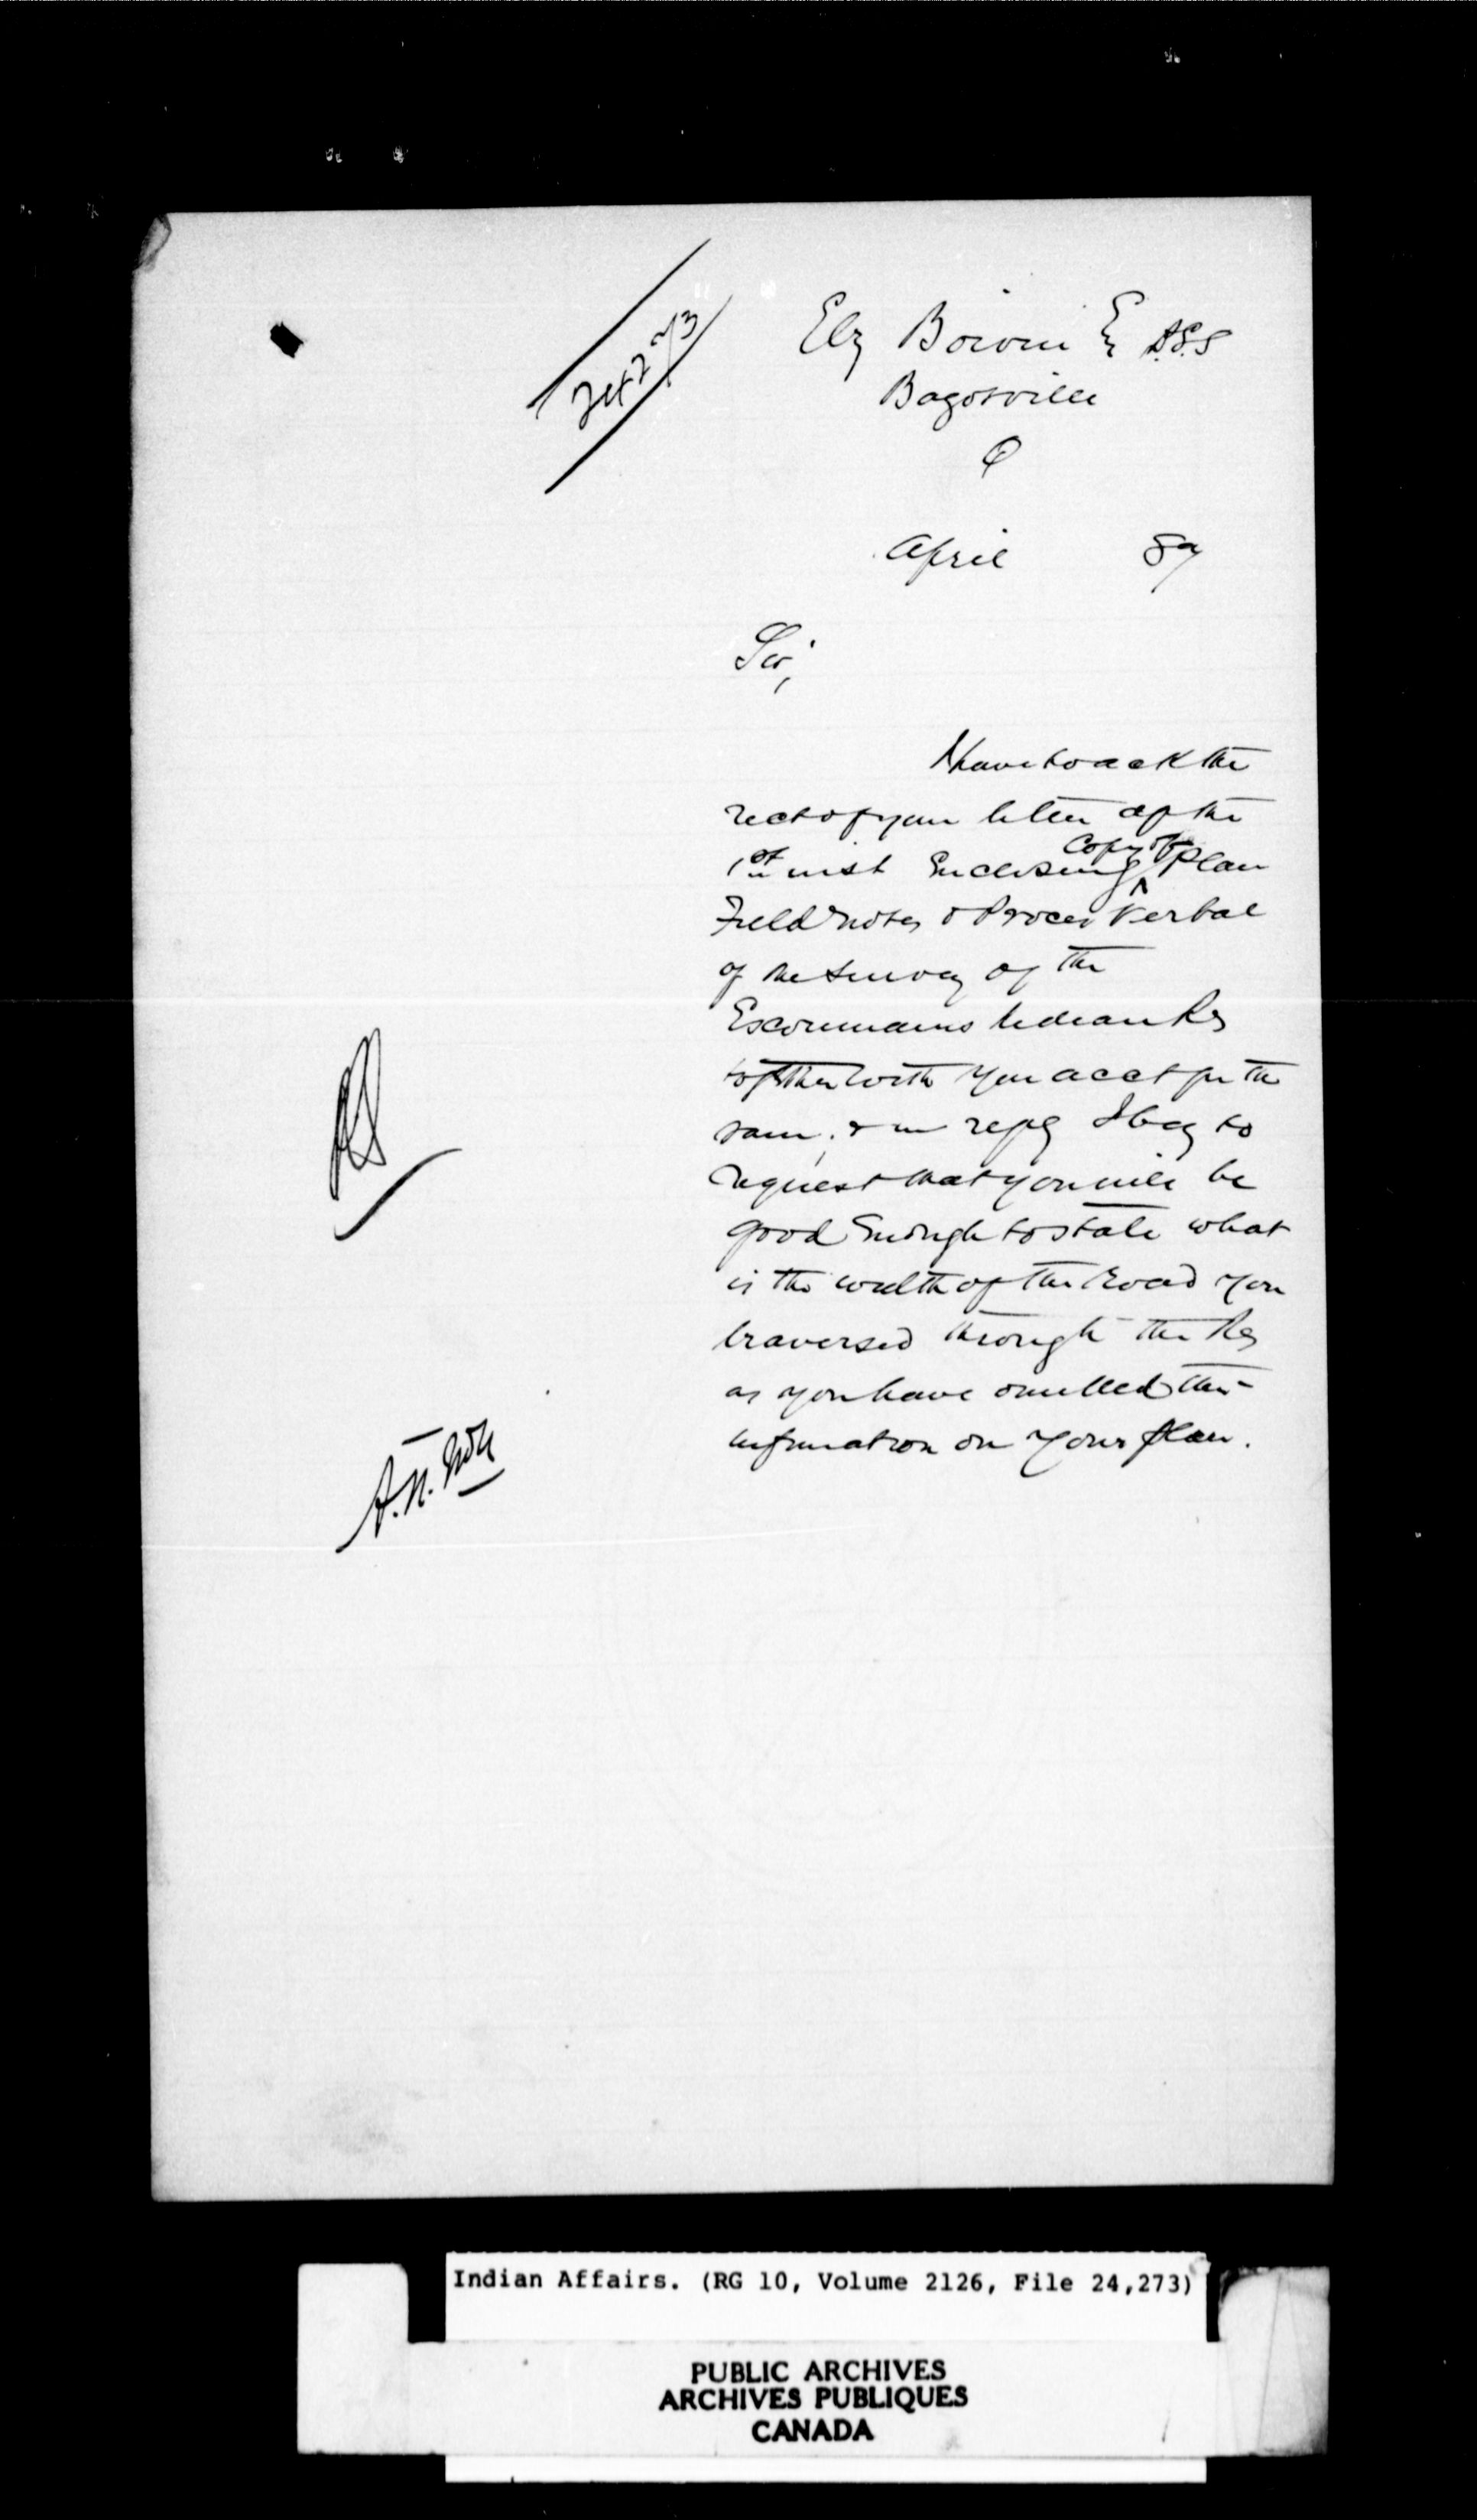 24273
Elz Boivin Esq D.L.S
Bagotville
Q
April 89
Sir,
I have to ack the
rect of your letter of the
1st inst Enclosing Copy of Plan
Field notes & Proces Verbal
of the survey of the
Escoumains Indian Res
together with your acct for the
same, & in reply I beg to
request that you will be
good Enough to state what
is the width of the Road you
traversed through the Res
as you have omitted this
information on your plan.
Indian Affairs. (RG 10, Volume 2126, File 24,273)
PUBLIC ARCHIVES
ARCHIVES PUBLIQUES
CANADA